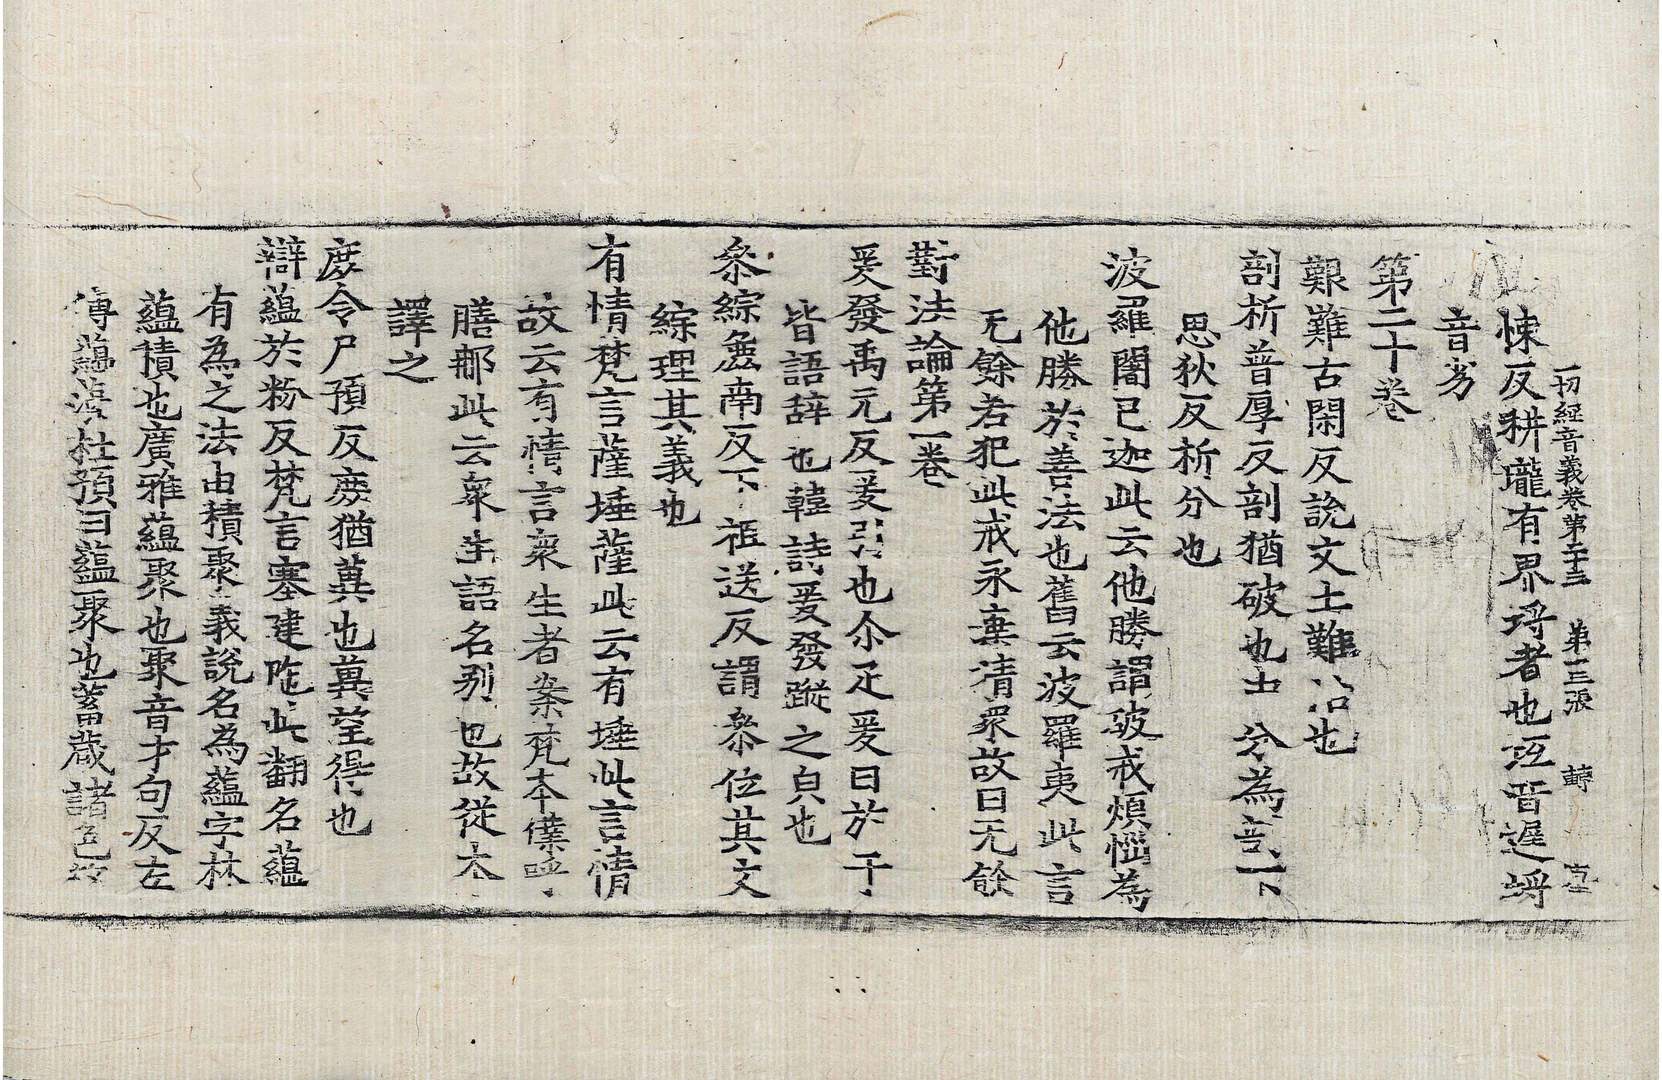 一切經音義卷第二十三　第十三張　𫝊
悚反耕壠有界埒者也坘音遲埒
音劣
第二十卷
艱難古閑反說文土難治也
剖析普厚反剖猶破也中分為剖下
思狄反析分也
波羅闍已迦此云他勝謂破戒煩惱為
他勝於善法也舊云波羅夷此言
无餘若犯此戒永棄清眾故曰无餘
對法論第一卷
爰發禹元反爰引也尒疋爰曰於于
皆語辞也韓詩爰發蹤之皃也
叅綜麁南反下祖送反謂叅位其文
綜理其義也
有情梵言薩埵薩此云有埵此言情
故云有情言衆生者案梵本僕呼
膳那此云衆生語名別也故從本
譯之
庶令尸預反庶猶冀也冀望得也
辯蘊於粉反梵言塞建陁此翻名蘊
有為之法由積聚義說名為蘊字林
蘊積也廣雅蘊聚也聚音才句反左
傳蘊藻杜預曰蘊聚也蓄藏諸色